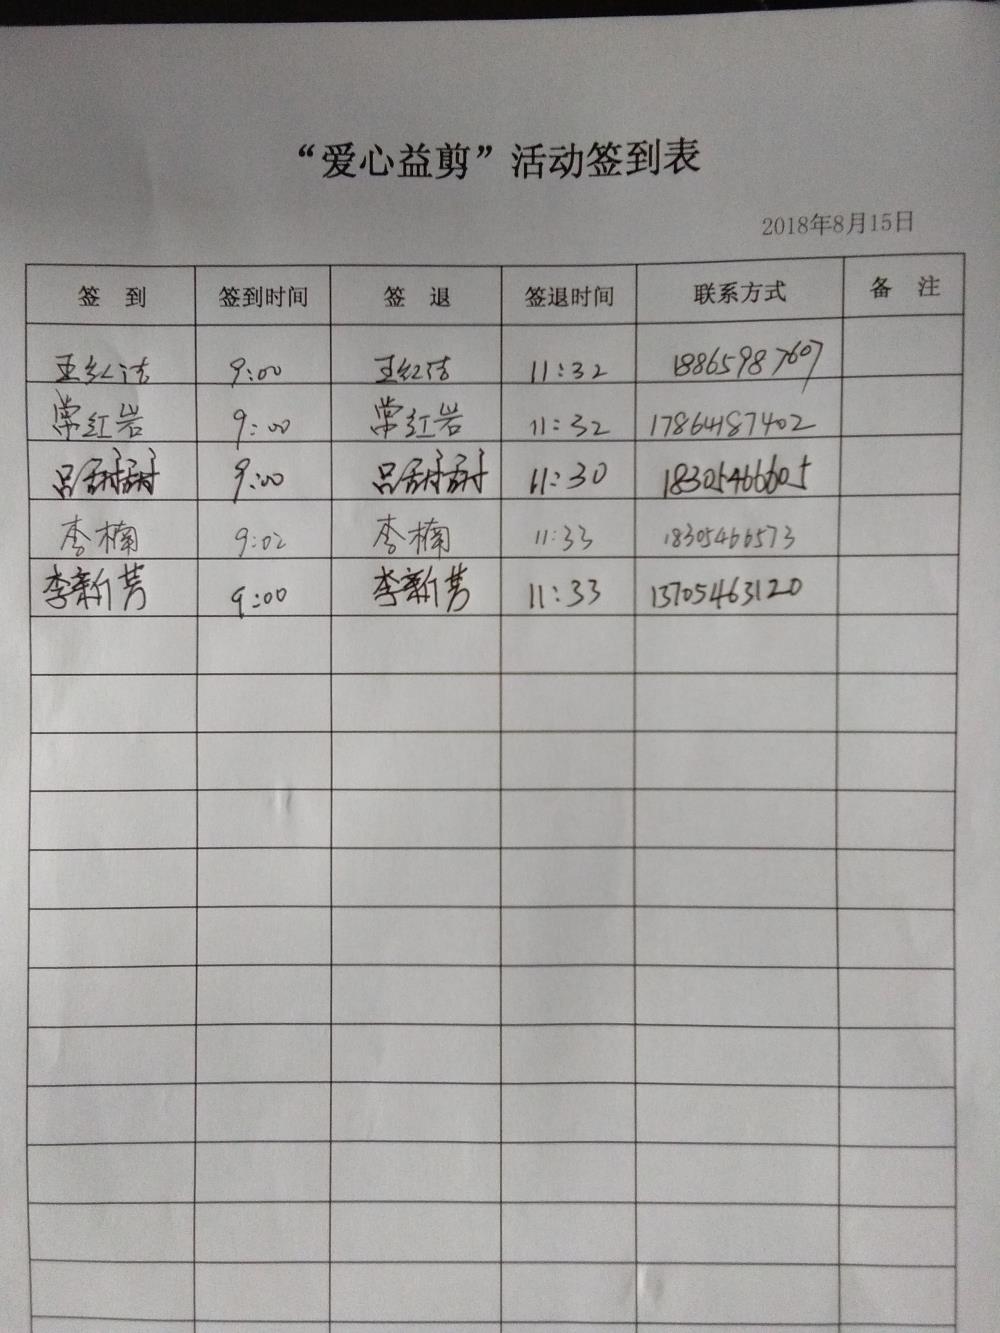 “爱心益剪”活动签到表
2018年8月15日
签 到 签到时间 签 退 签退时间 联系方式 备 注
王红洁 9:00 王红洁 11:32 18865987607
常红岩 9:00 常红岩 11:32 17864187402
吕甜甜 9:00 吕甜甜 11:30 18305466605
李楠 9:02 李楠 11:33 18305466573
李新芳 9:00 李新芳 11:33 13705463120